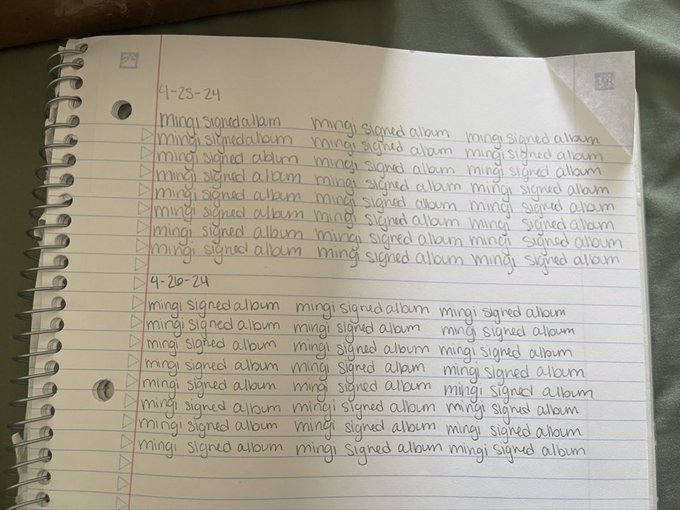 4-25-24
mingi signed album mingi signed album mingi signed album
mingi signed album mingi signed album mingi signed album
mingi signed ablum mingi signed album mingi signed album
mingi signed album mingi signed album mingi signed album
mingi signed album mingi signed album mingi signed album
mingi signed album mingi signed album mingi signed album
mingi signed album mingi signed album mingi signed album
mingi signed album mingi signed album mingi signed album
4-26-24
mingi signed album mingi signed album mingi signed album
mingi signed album mingi signed album mingi signed album
mingi signed album mingi signed album mingi signed album
mingi signed album mingi signed albam mingi signed album
mingi signed album mingi signed album mingi signed album
mingi signed album mingi signed album mingi signed album
mingi signed album mingi signed album mingi signed album
mingi signed album mingi signed album mingi signed album